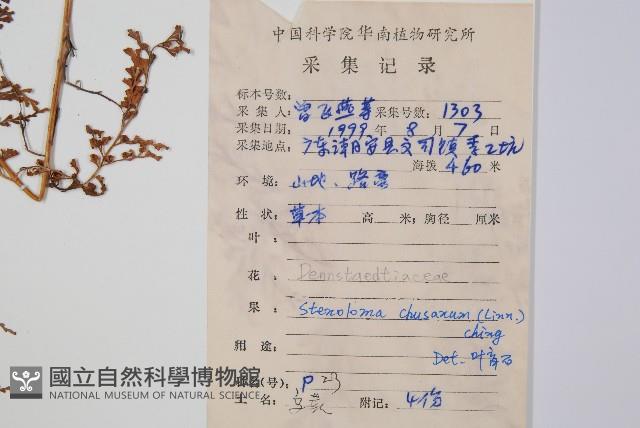 中国科学院华南植物研究所
采集记录
标本号数：
采集人：曾飞燕等 采集号数：1303
采集日期：1999年8月7日
采集地点：广东 县 司镇 坑
海拨 460米
环境：山地、路旁
性状：草本 高 米；胸径 厘米
叶：
花： Dennstaedtiaceae
果： Stenoloma chusanum (Linn.)
Ching
用途： Det. 叶育石
(号)： P 23
土名： 附记：4份
國立自然科學博物館
NATIONAL MUSEUM OF NATURAL SCIENCE